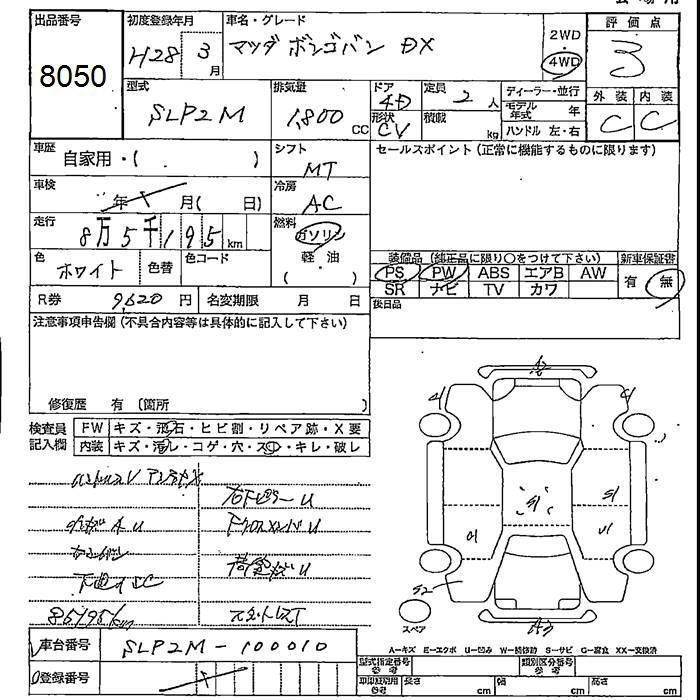 出品番号
8050
初度登録年月
H28 3月
車名・グレード
マツダ ボンゴバン DX
2WD
・
4WD
評価点
3
型式
SLP2M
排気量
1,800 CC
ドア
4D
形状
CV
定員
2人
積載
kg
ディーラー・並行
モデル年式 年
ハンドル 左・右
外装 内装
C C
車歴
自家用・( )
シフト
MT
セールスポイント(正常に機能するものに限ります)
車検
年 月( 日)
冷房
AC
走行
8万5千195km
燃料
ガソリン
軽・油
( )
色
ホワイト
色替
色コード
装備品(純正品に限り○をつけて下さい)
新車保証書
PS PW ABS エアB AW
SR ナビ TV カワ
有 無
R券 9,620円
名変期限 月 日
後日品
注意事項申告欄(不具合内容等は具体的に記入して下さい)
修復歴 有(箇所 )
検査員記入欄
FW キズ・飛石・ヒビ割・リペア跡・X要
内装 キズ・汚レ・コゲ・穴・スレ・キレ・破レ
右トビラーU
下クロスメンバU
下廻りSC
85195km
車台番号
SLP2M-100010
登録番号
A2
S1
S1
U1
S2
スペア
A-キズ E-エクボ U-凹み W-補修跡 S-サビ C-腐食 XX-交換済
型式指定番号
参考
類別区分番号
参考
車印紙切用
参考
長さ cm
幅 cm
高さ cm